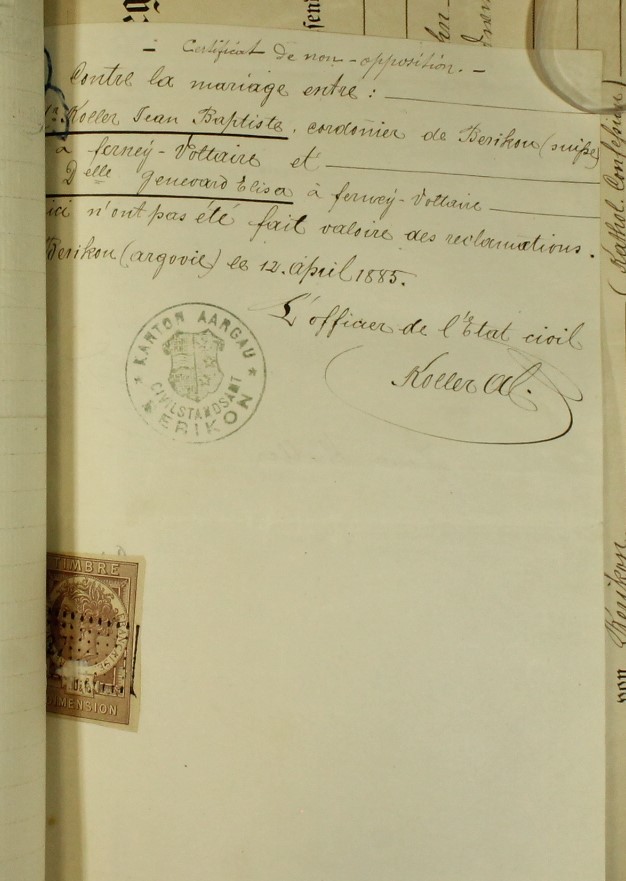 - Certificat de non-opposition. -
Contre la mariage entre :
Mr. Koller Jean Baptiste, cordonier de Berikon (suisse)
à ferney-Voltaire et
Delle Genevard Elisa à ferney-Voltaire
ici n'ont pas été fait valoire des reclamations.
Berikon (argovie) le 12. April 1885.
L'officier de l'Etat civil
Koller Al.
* KANTON AARGAU *
CIVILSTANDSAMT
BERIKON
TIMBRE
DIMENSION
(Kathol. Confession)
von Berikon